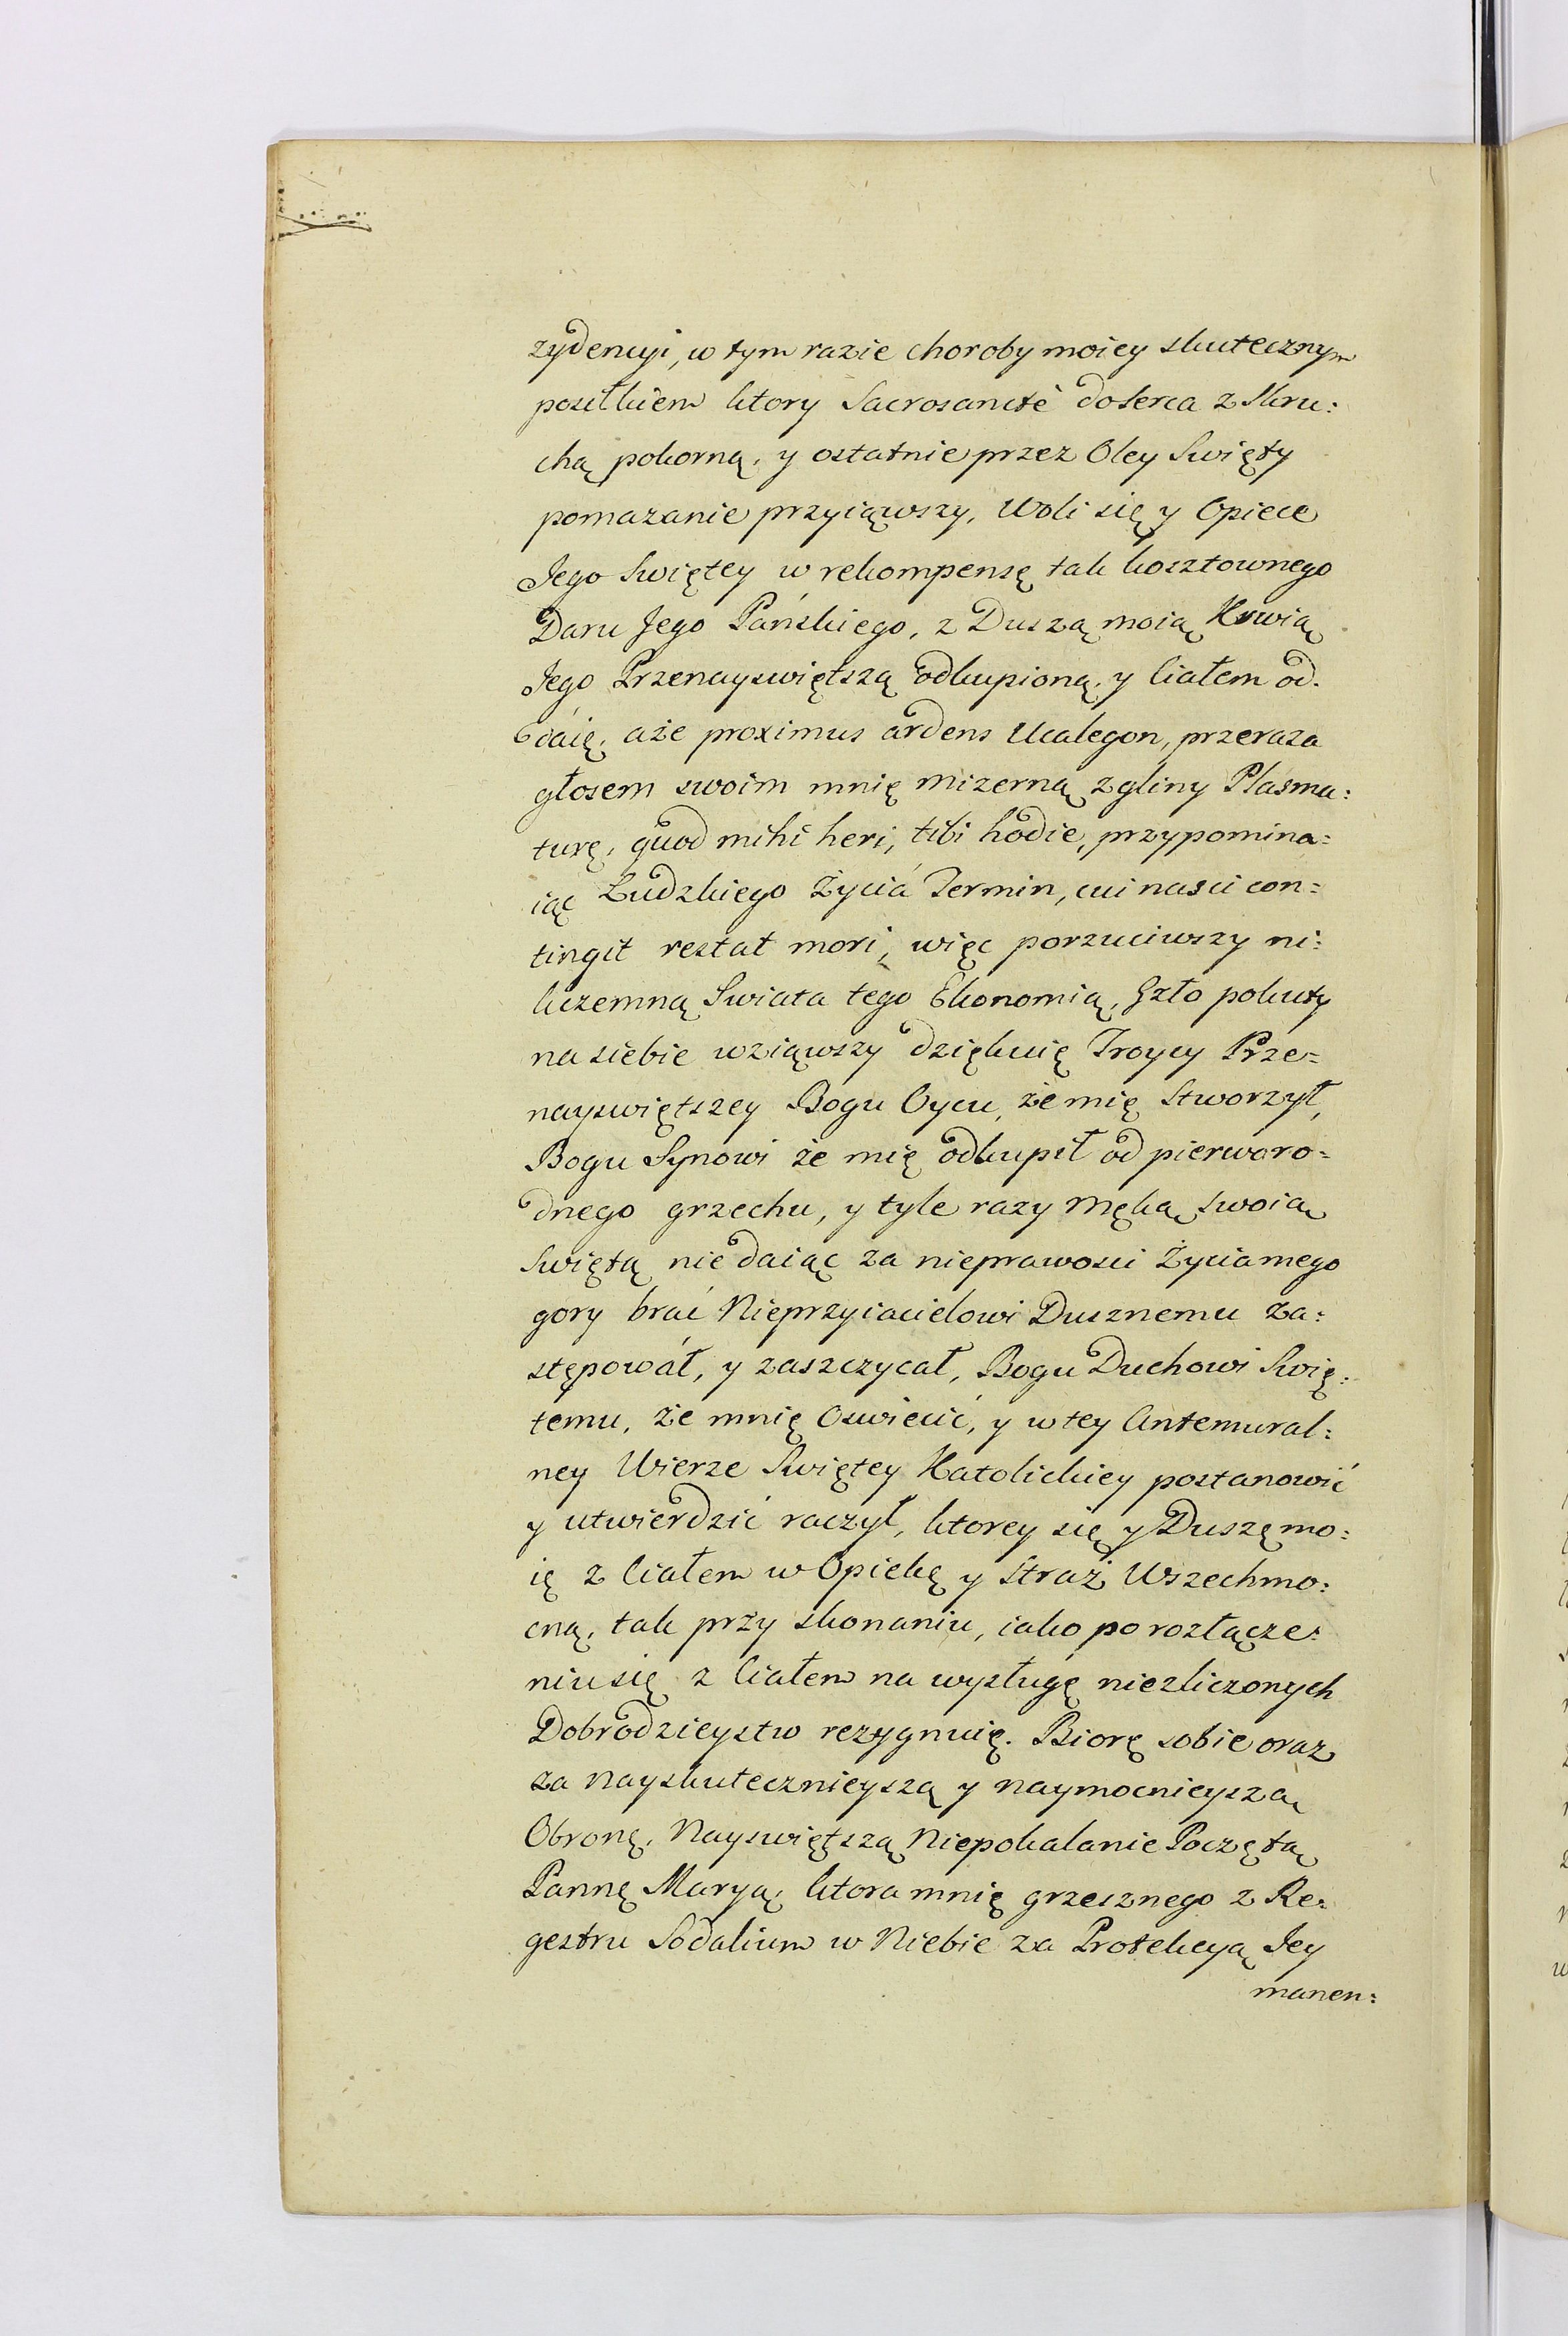 zydencyi, w tym razie choroby moiey skutecznym
posiłkiem ktory Sacrosanctè do serca z Skru:
chą pokorną, y ostatnie przez Oley Swięty
pomazanie przyiąwszy, Woli się y Opiece
Jego Swiętey w rekompensę tak kosztownego
Daru Jego Pańskiego, z Duszą moią Krwią
Jego Przenayswiętszą odkupioną, y Ciałem od.
daię, aże proximus ardens Ucalegon, przeraza
głosem swoim mnię mizerną z gliny Plasma:
turę, quod mihi heri, tibi hodie, przypomina:
iąc Ludzkiego Życiá Termin, cui nasci con:
tingit restat mori, więc porzuciwszy ni:
kczemną Swiata tego Ekonomią, Gzło pokuty
na siebie wziąwszy dziękuię Troycy Prze=
nayswiętszey Bogu Oycu, że mię Stworzył,
Bogu Synowi że mię odkupił od pierworo=
dnego grzechu, y tyle razy Męką swoią
Swiętą nie daiąc za nieprawosci Życia mego
gory brać Nieprzyiacielowi Dusznemu za:
stępowáł, y zaszczycał, Bogu Duchowi Swię:
temu, że mnię Oswiecić, y w tey Antemural:
ney Wierze Swiętey Katolickiey postanowić
y utwierdzić raczył, ktorey się y Duszę mo:
ię z Ciałem w Opiekę y Straż Wszechmo:
cną, tak przy skonaniu, iako po rozłącze:
niu się z Ciałem na wysługę niezliczonych
Dobrodzieystw rezygnuię. Biorę sobie oraz
za Nayskutecznieyszą y naymocnieyszą
Obronę, Nayswiętszą Niepokalanie Poczętą
Pannę Maryą, ktora mnię grzesznego z Re:
gestru Sodalium w Niebie za Protekcyą Jey
manen: